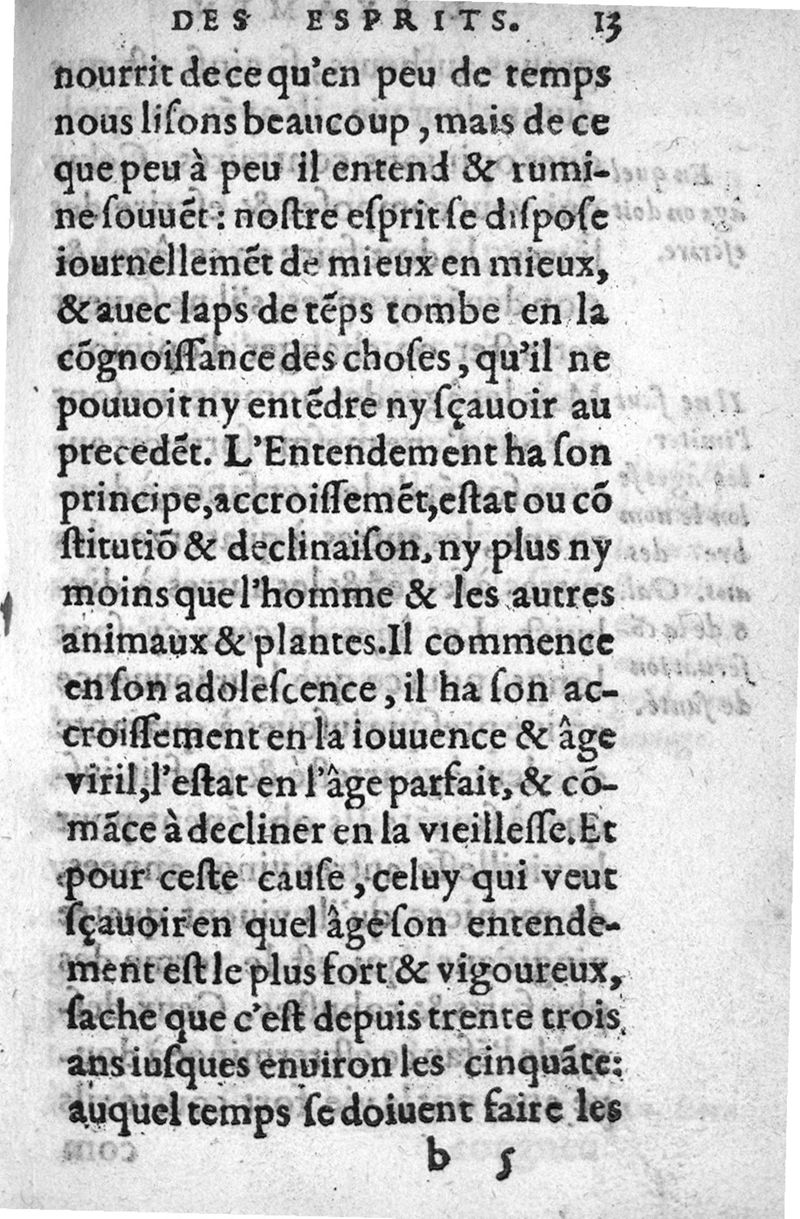 DES ESPRITS. 13
nourrit de ce qu'en peu de temps
nous liſons beaucoup, mais de ce
que peu à peu il entend & rumi-
ne ſouuẽt: noſtre eſprit ſe diſpoſe
iournellemẽt de mieux en mieux,
& auec laps de tẽps tombe en la
cõgnoiſſance des choſes, qu'il ne
pouuoit ny entẽdre ny ſçauoir au
precedẽt. L'Entendement ha ſon
principe, accroiſſemẽt, eſtat ou cõ
ſtitutiõ & declinaiſon, ny plus ny
moins que l'homme & les autres
animaux & plantes. Il commence
en ſon adoleſcence, il ha ſon ac-
croiſſement en la iouuence & âge
viril, l'eſtat en l'âge parfait, & cõ-
mãce à decliner en la vieilleſſe. Et
pour ceſte cauſe, celuy qui veut
ſçauoir en quel âge ſon entende-
ment eſt le plus fort & vigoureux,
ſache que c'eſt depuis trente trois
ans iuſques enuiron les cinquãte:
auquel temps ſe doiuent faire les
b 5